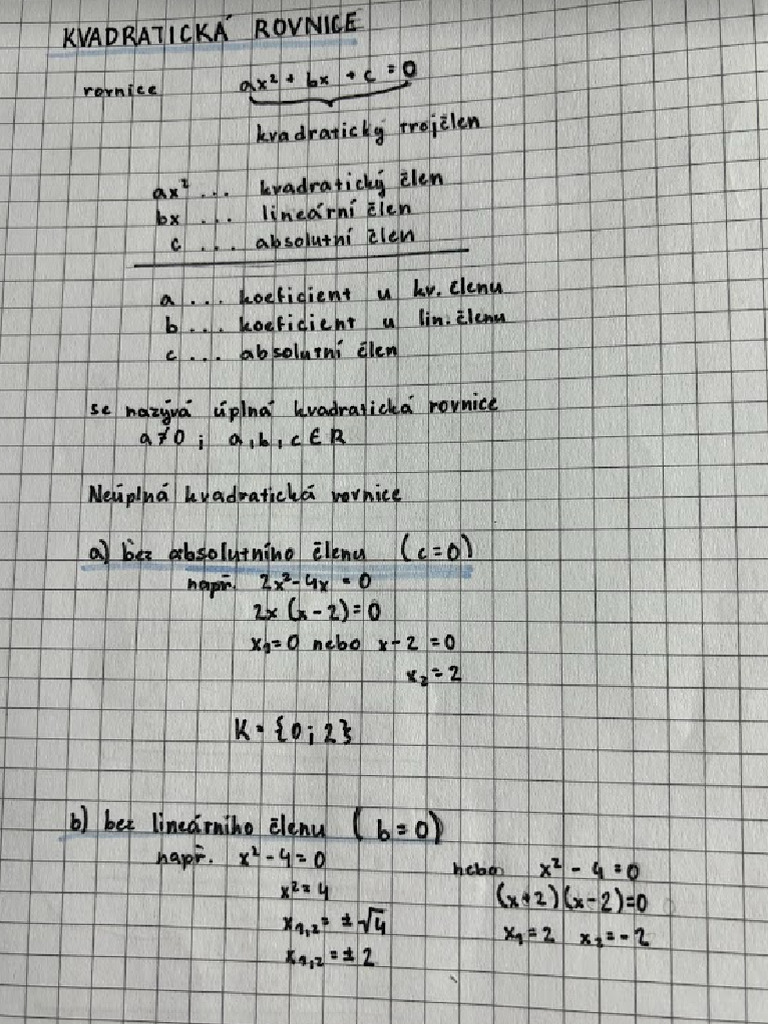 KVADRATICKÁ ROVNICE
rovnice ax² + bx + c = 0
kvadratický trojčlen
ax² ... kvadratický člen
bx ... lineární člen
c ... absolutní člen
a ... koeficient u kv. členu
b ... koeficient u lin. členu
c ... absolutní člen
se nazývá úplná kvadratická rovnice
a≠0 ; a, b, c ∈ R
Neúplná kvadratická rovnice
a) bez absolutního členu (c=0)
např. 2x² - 4x = 0
2x (x - 2) = 0
x₁=0 nebo x-2 = 0
x₂ = 2
K = {0; 2}
b) bez lineárního členu (b=0)
např. x² - 4 = 0
x² = 4
x₁,₂ = ± √4
x₁,₂ = ± 2
nebo x² - 4 = 0
(x+2)(x-2)=0
x₁ = 2 x₂ = - 2